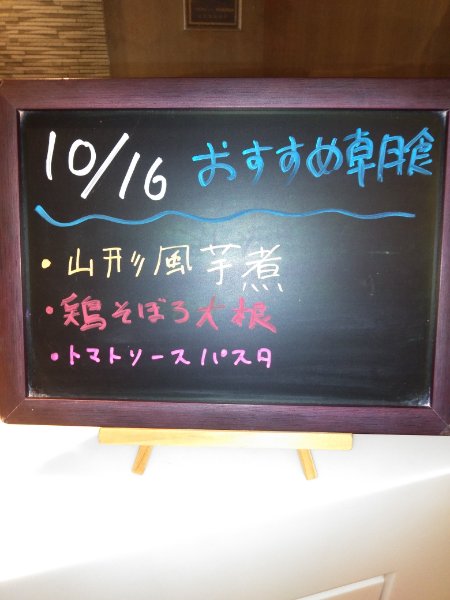 10/16 おすすめ朝食
・山形風芋煮
・鶏そぼろ大根
・トマトソースパスタ